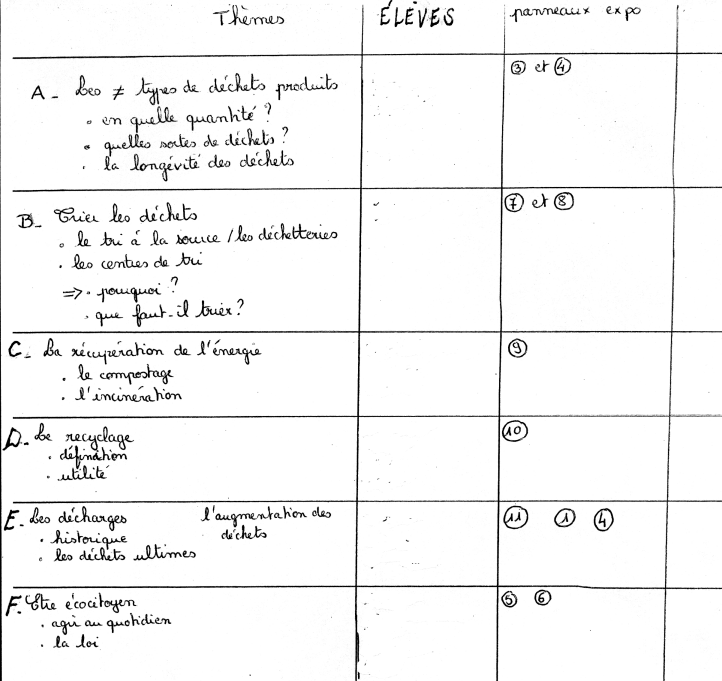 Thèmes ÉLÈVES panneaux expo
A - Les ≠ types de déchets produits ③ et ④
• en quelle quantité ?
• quelles sortes de déchets ?
• la longévité des déchets
B - Trier les déchets ⑦ et ⑧
• le tri à la source / les déchetteries
• les centres de tri
=> • pourquoi ?
• que faut-il trier ?
C - La récupération de l'énergie ⑨
• le compostage
• l'incinération
D - Le recyclage ⑩
• définition
• utilité
E - Les décharges l'augmentation des ⑪ ① ④
• historique déchets
• les déchets ultimes
F. Etre écocitoyen ⑤ ⑥
• agir au quotidien
• la loi